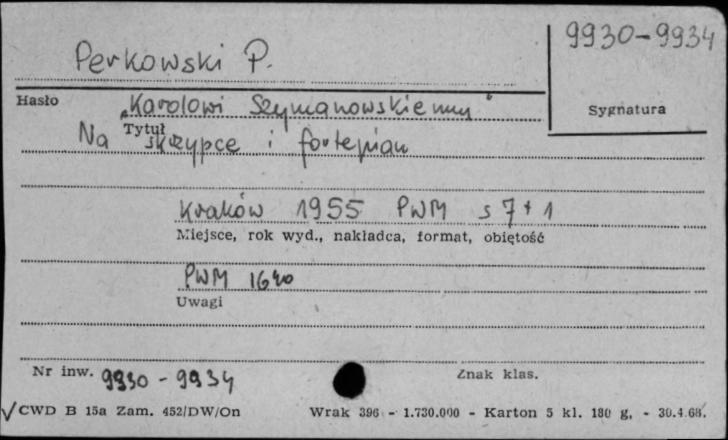 9930-9934
Perkowski P.
Hasło
"Karolowi Szymanowskiemu"
Sygnatura
Tytuł
Na skrzypce i fortepian
Kraków 1955 PWM s 7+1
Miejsce, rok wyd., nakładca, format, obiętość
PWM 1640
Uwagi
Nr inw. 9930-9934
Znak klas.
√CWD B 15a Zam. 452/DW/On Wrak 396 - 1.730.000 - Karton 5 kl. 180 g, - 30.4.68.